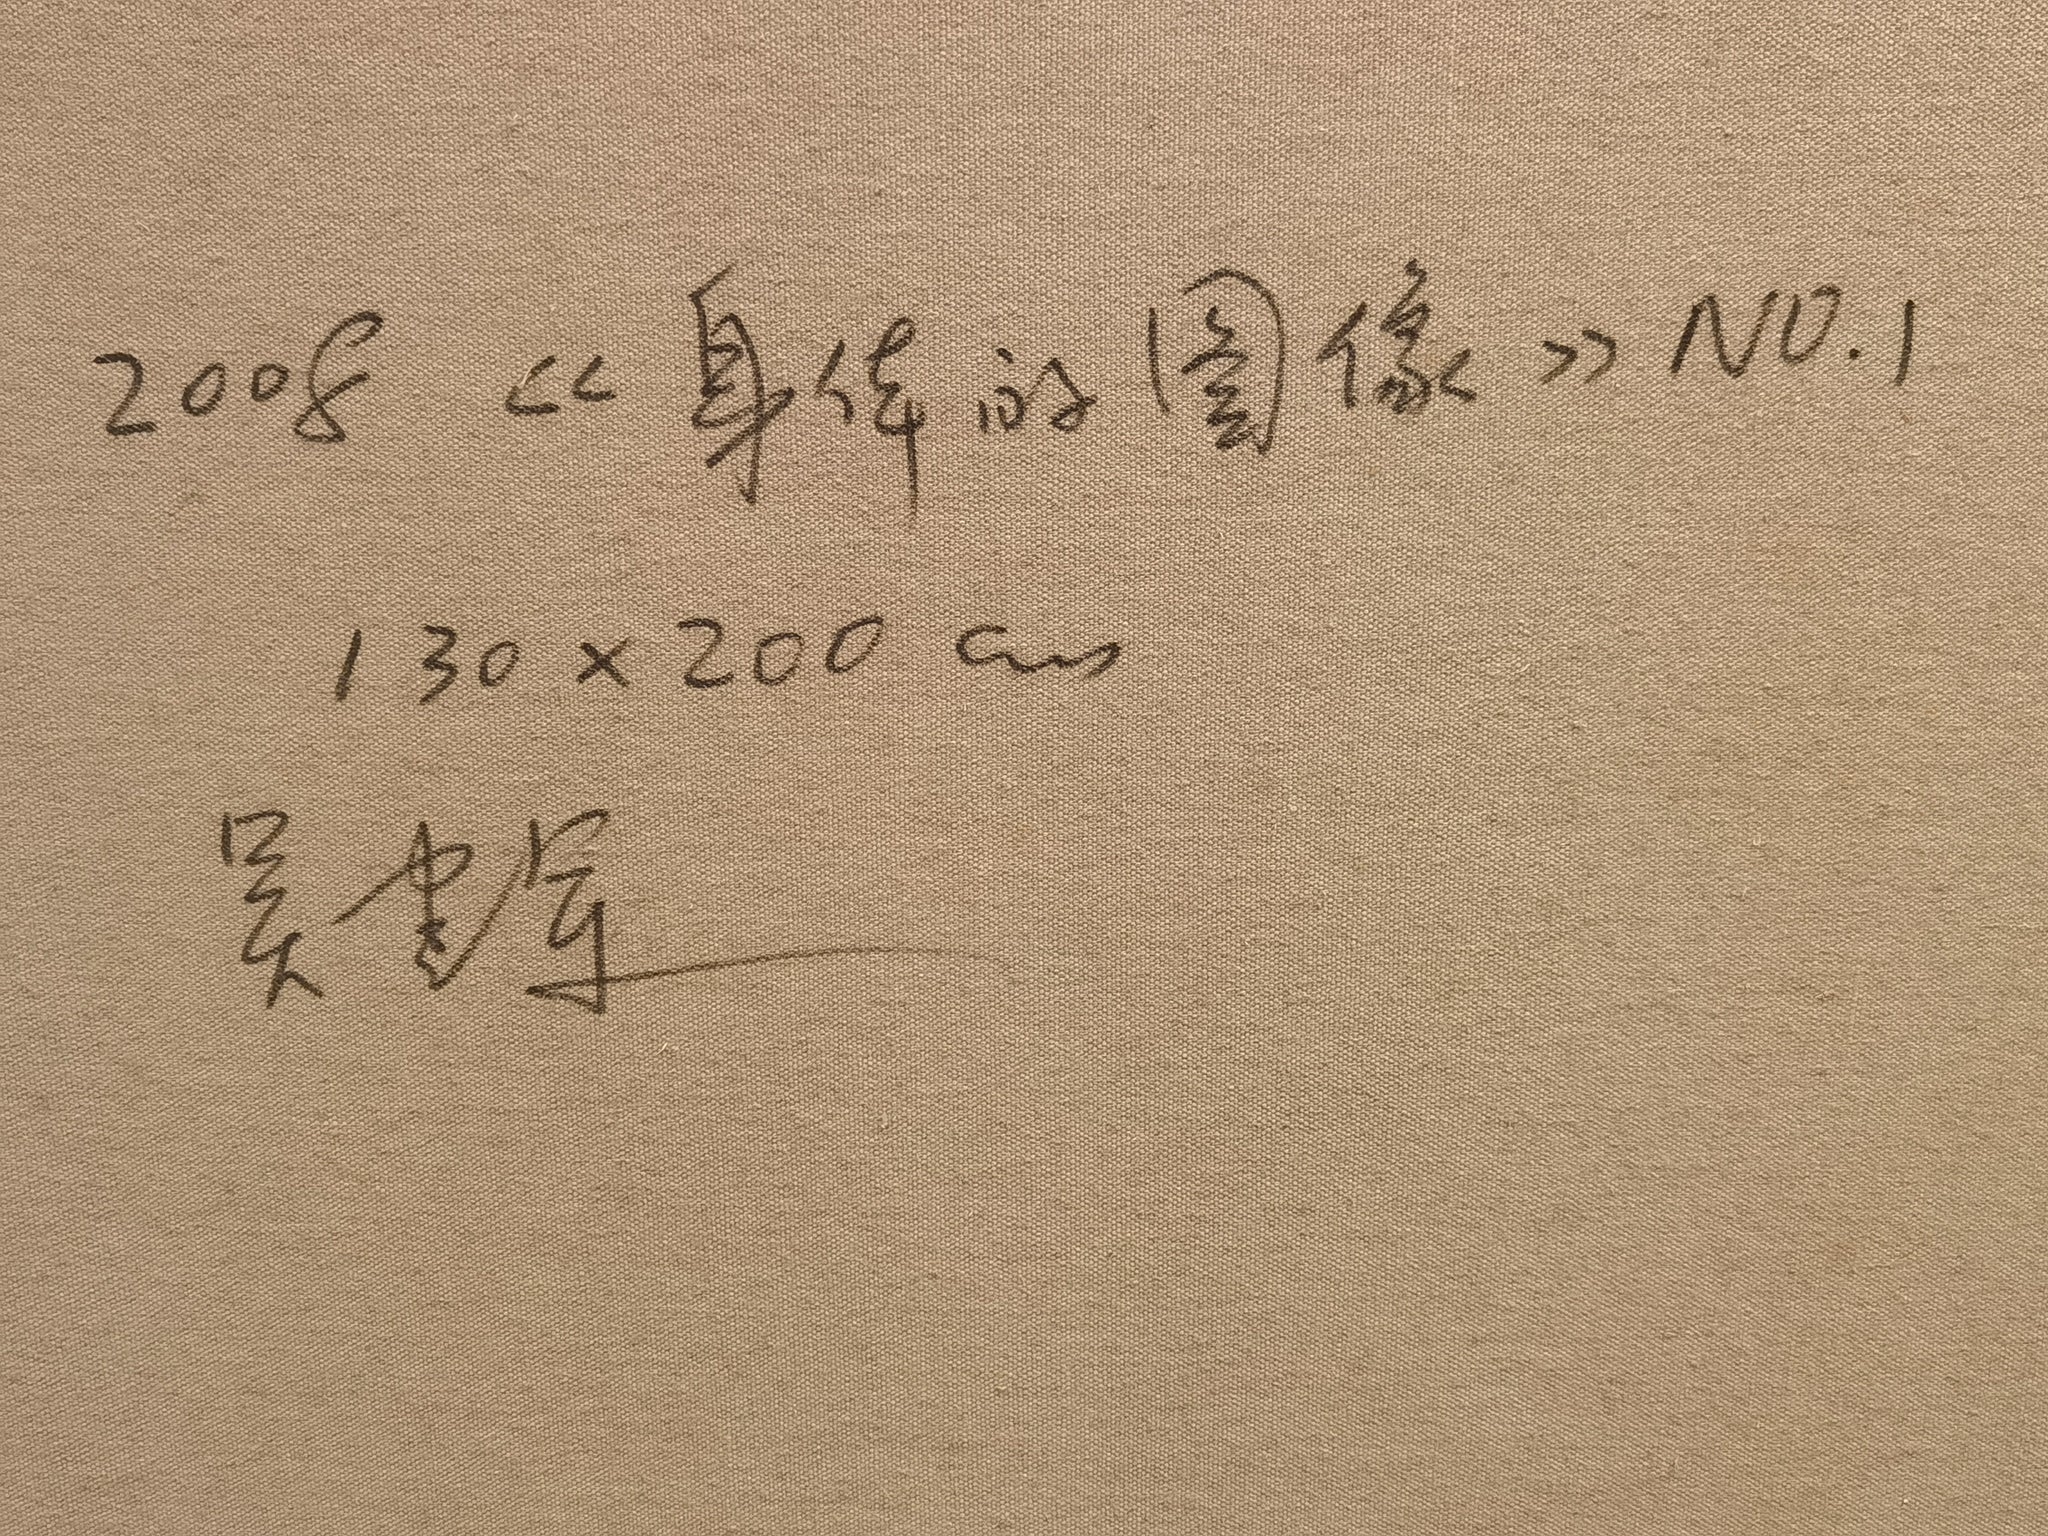 2008 《身体的图像》 NO.1
130 × 200 cm
吴